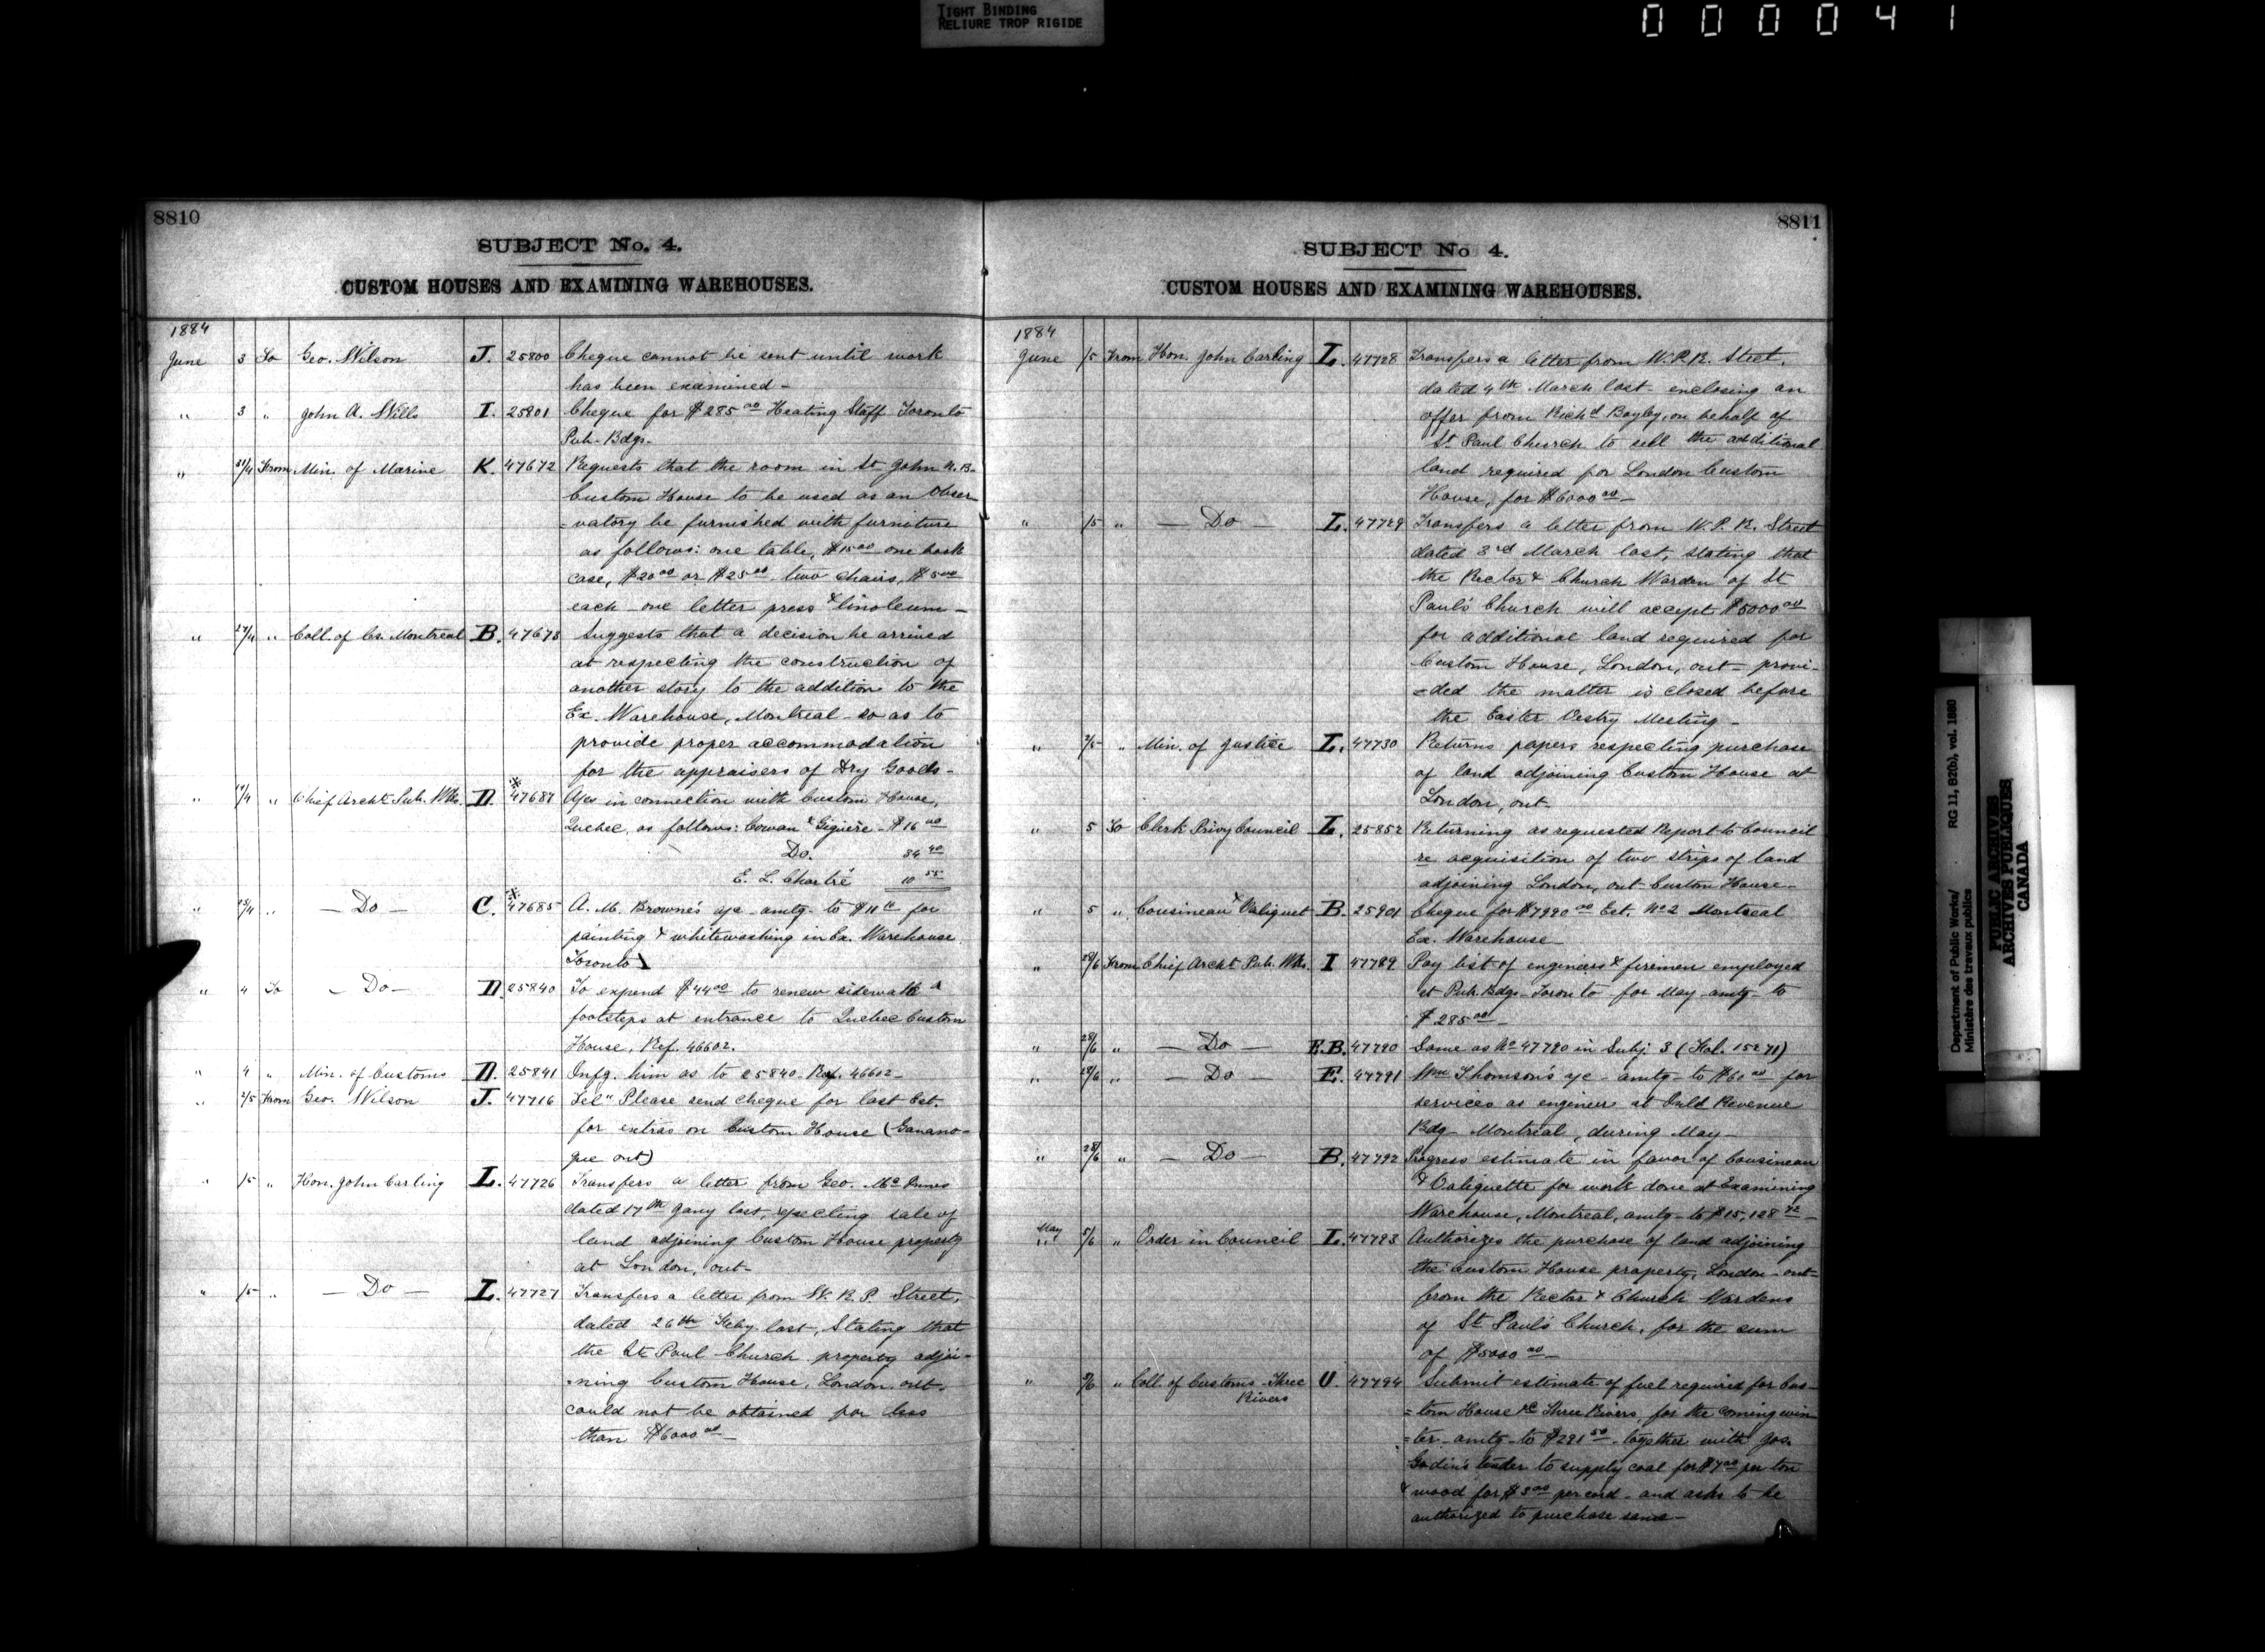 TIGHT BINDING
RELIURE TROP RIGIDE
000041
8810
SUBJECT No. 4.
CUSTOM HOUSES AND EXAMINING WAREHOUSES.
1884
June 3 To Geo. Wilson J. 25800 Cheque cannot be sent until work
has been examined -
" 3 " John A. Wills I. 25801 Cheque for $285 00 Heating Staff Toronto
Pub. Bdgs.
" From Min. of Marine K. 47672 Requests that the room in St John N.B.
Custom House to be used as an Obser
=vatory be furnished with furniture
as follows: one table, $15 00 one book
case, $20 00 or $25 00 two chairs, $5 00
each one letter press & linoleum -
" " Coll. of Cs. Montreal B. 47673 Suggests that a decision be arrived
at respecting the construction of
another story to the addition to the
Ex. Warehouse, Montreal so as to
provide proper accommodation
for the appraisers of Dry Goods -
" " Chief Archt. Pub. Wks. D. 47687 A/cs in connection with Custom House,
Quebec, as follows: Cowan & Gigière - $16 00
Do. 34 40
E. L. Chartré 10 55
" " - Do - C. 47685 A. M. Browne's a/c - amtg. to $11 for
painting & whitewashing in Ex. Warehouse
Toronto
" 4 To - Do - D. 25840 To expend $44 00 to renew sidewalk &
footsteps at entrance to Quebec Custom
House, Ref. 46602.
" 4 " Min. of Customs D. 25841 Infg. him as to 25840 - Ref. 46602 -
" 2/5 From Geo. Wilson J. 47716 Tel" Please send cheque for last Est.
for extras on Custom House (Ganano-
que ont)
" 1/5 " Hon. John Carling L. 47726 Transfers a letter from Geo. McInnes
dated 17th Jany last, respecting sale of
land adjoining Custom House property
at London, ont -
" 1/5 " - Do - L. 47727 Transfers a letter from W. R. P. Street,
dated 26th Feby last, Stating that
the St. Paul Church property adjoi-
-ning Custom House, London, ont -
could not be obtained for less
than $6000 00 -
8811
SUBJECT No 4.
CUSTOM HOUSES AND EXAMINING WAREHOUSES.
1884
June 1/5 From Hon. John Carling L. 47728 Transfers a letter from W. P. R. Street,
dated 4th March last - enclosing an
offer from Richd Bayley, on behalf of
St. Paul Church to sell the additional
land required for London Custom
House, for $6000 00 -
" 1/5 " - Do - L. 47729 Transfers a letter from W. P. R. Street
dated 3rd March last, stating that
the Rector & Church Warden of St
Paul's Church will accept $5000 00
for additional land required for
Custom House, London, ont - provi-
=ded the matter is closed before
the Easter Vestry Meeting -
" 2/5 " Min. of Justice L. 47730 Returns papers respecting purchase
of land adjoining Custom House at
London, ont -
" 5 To Clerk Privy Council L. 25852 Returning as requested Report to Council
re acquisition of two strips of land
adjoining London, ont - Custom House -
" 5 " Cousineau & Valiquet B. 25901 Cheque for $7990 00 Est. No 2 Montreal
Ex. Warehouse
" 28/6 From Chief Archt. Pub. Wks. I 47789 Pay list of engineers & firemen employed
at Pub. Bdgs - Toronto for May - amtg - to
$285 00 -
" 28/6 " - Do - E.B. 47790 Same as No 47790 in Subj. 3 (Fol. 15271)
" 28/6 " - Do - E. 47791 Wm Thomson's a/c - amtg - to $60 00 for
services as engineer at Inld Revenue
Bdg - Montreal, during May -
" 28/6 " - Do - B. 47792 Progress estimate in favor of Cousineau
& Valiquette for work done at Examining
Warehouse, Montreal, amtg - to $15,128 72 -
May " 5/6 " Order in Council L. 47793 Authorizes the purchase of land adjoining
the Custom House property, London - ont -
from the Rector & Church Wardens
of St. Paul's Church, for the sum
of $5000 00 -
" " Coll. of Customs - Three Rivers U. 47794 Submit estimate of fuel required for Cus-
=tom House &c Three Rivers, for the coming win
=ter - amtg - to $291 50 - together with Jos.
Godin's tender to supply coal for $7 00 per ton
& wood for $3 00 per cord - and asks to be
authorized to purchase same -
Department of Public Works/
Ministère des travaux publics
RG 11, B2(b), vol. 1880
PUBLIC ARCHIVES
ARCHIVES PUBLIQUES
CANADA